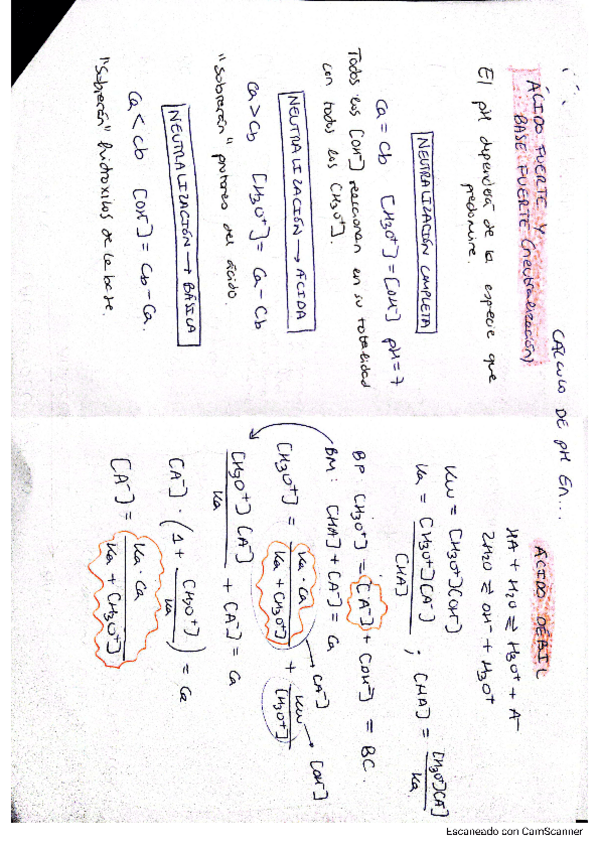 CÁLCULO DE PH EN...
ÁCIDO FUERTE Y
BASE FUERTE (neutralización)
El pH dependerá de la especie que
predomine.
NEUTRALIZACIÓN COMPLETA
Ca = Cb [H3O+] = [OH-] pH = 7
Todos los [OH-] reaccionan en su totalidad
con todos los [H3O+].
NEUTRALIZACIÓN → ÁCIDA
Ca > Cb [H3O+] = Ca - Cb
"Sobrarán" protones del ácido.
NEUTRALIZACIÓN → BÁSICA
Ca < Cb [OH-] = Cb - Ca.
"Sobrarán" hidroxilos de la base
ÁCIDO DÉBIL
HA + H2O ⇌ H3O+ + A-
2H2O ⇌ OH- + H3O+
Kw = [H3O+][OH-]
Ka = [H3O+][A-] / [HA] ; [HA] = [H3O+][A-] / Ka
BP: [H3O+] = [A-] + [OH-] = BC.
BM: [HA] + [A-] = Ca
[H3O+] = Ka · Ca / Ka + [H3O+] + Kw / [H3O+] → [A-] → [OH-]
[H3O+][A-] / Ka + [A-] = Ca
[A-] · (1 + [H3O+] / Ka) = Ca
[A-] = Ka · Ca / Ka + [H3O+]
Escaneado con CamScanner